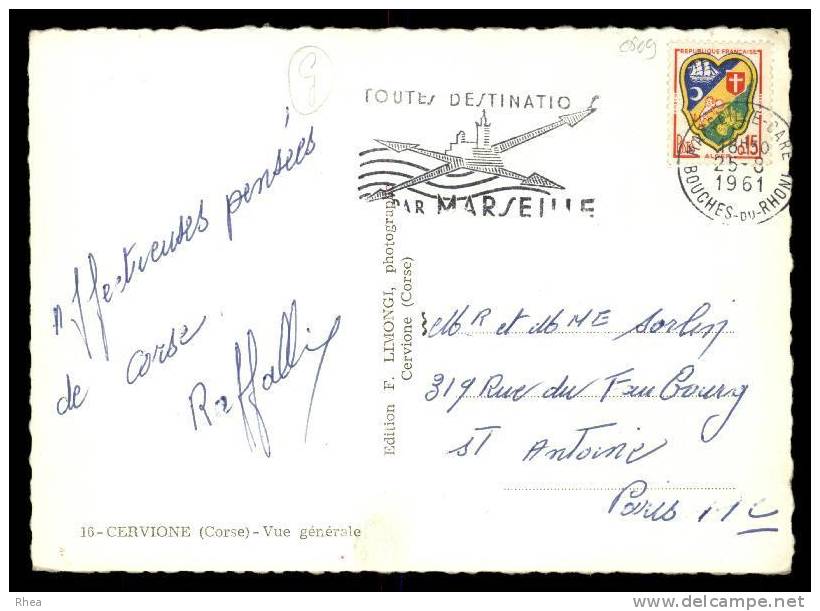 0809
TOUTES DESTINATIO
PAR MARSEILLE
REPUBLIQUE FRANÇAISE
15
ALGER
MARSEILLE-GARE
18H30
25-8
1961
BOUCHES-DU-RHONE
Affectueuses pensées
de corse
Raffalli
Edition F. LIMONGI, photographe
Cervione (Corse)
Mr et MME Sorlin
319 Rue du FauBourg
ST Antoine
Paris 11e
16-CERVIONE (Corse) - Vue générale
Rhea
www.delcampe.net